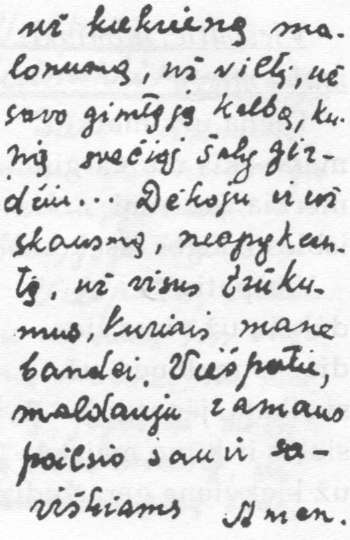 už kiekvieną ma-
lonumą, už viltį, už
savo gimtąją kalbą, ku-
rią svečioj šaly gir-
džiu... Dėkoju ir už
skausmą, neapykan-
tą, už visus trūku-
mus, kuriais mane
bandei. Viešpatie,
maldauju ramaus
poilsio sau ir sa-
viškiams Amen.